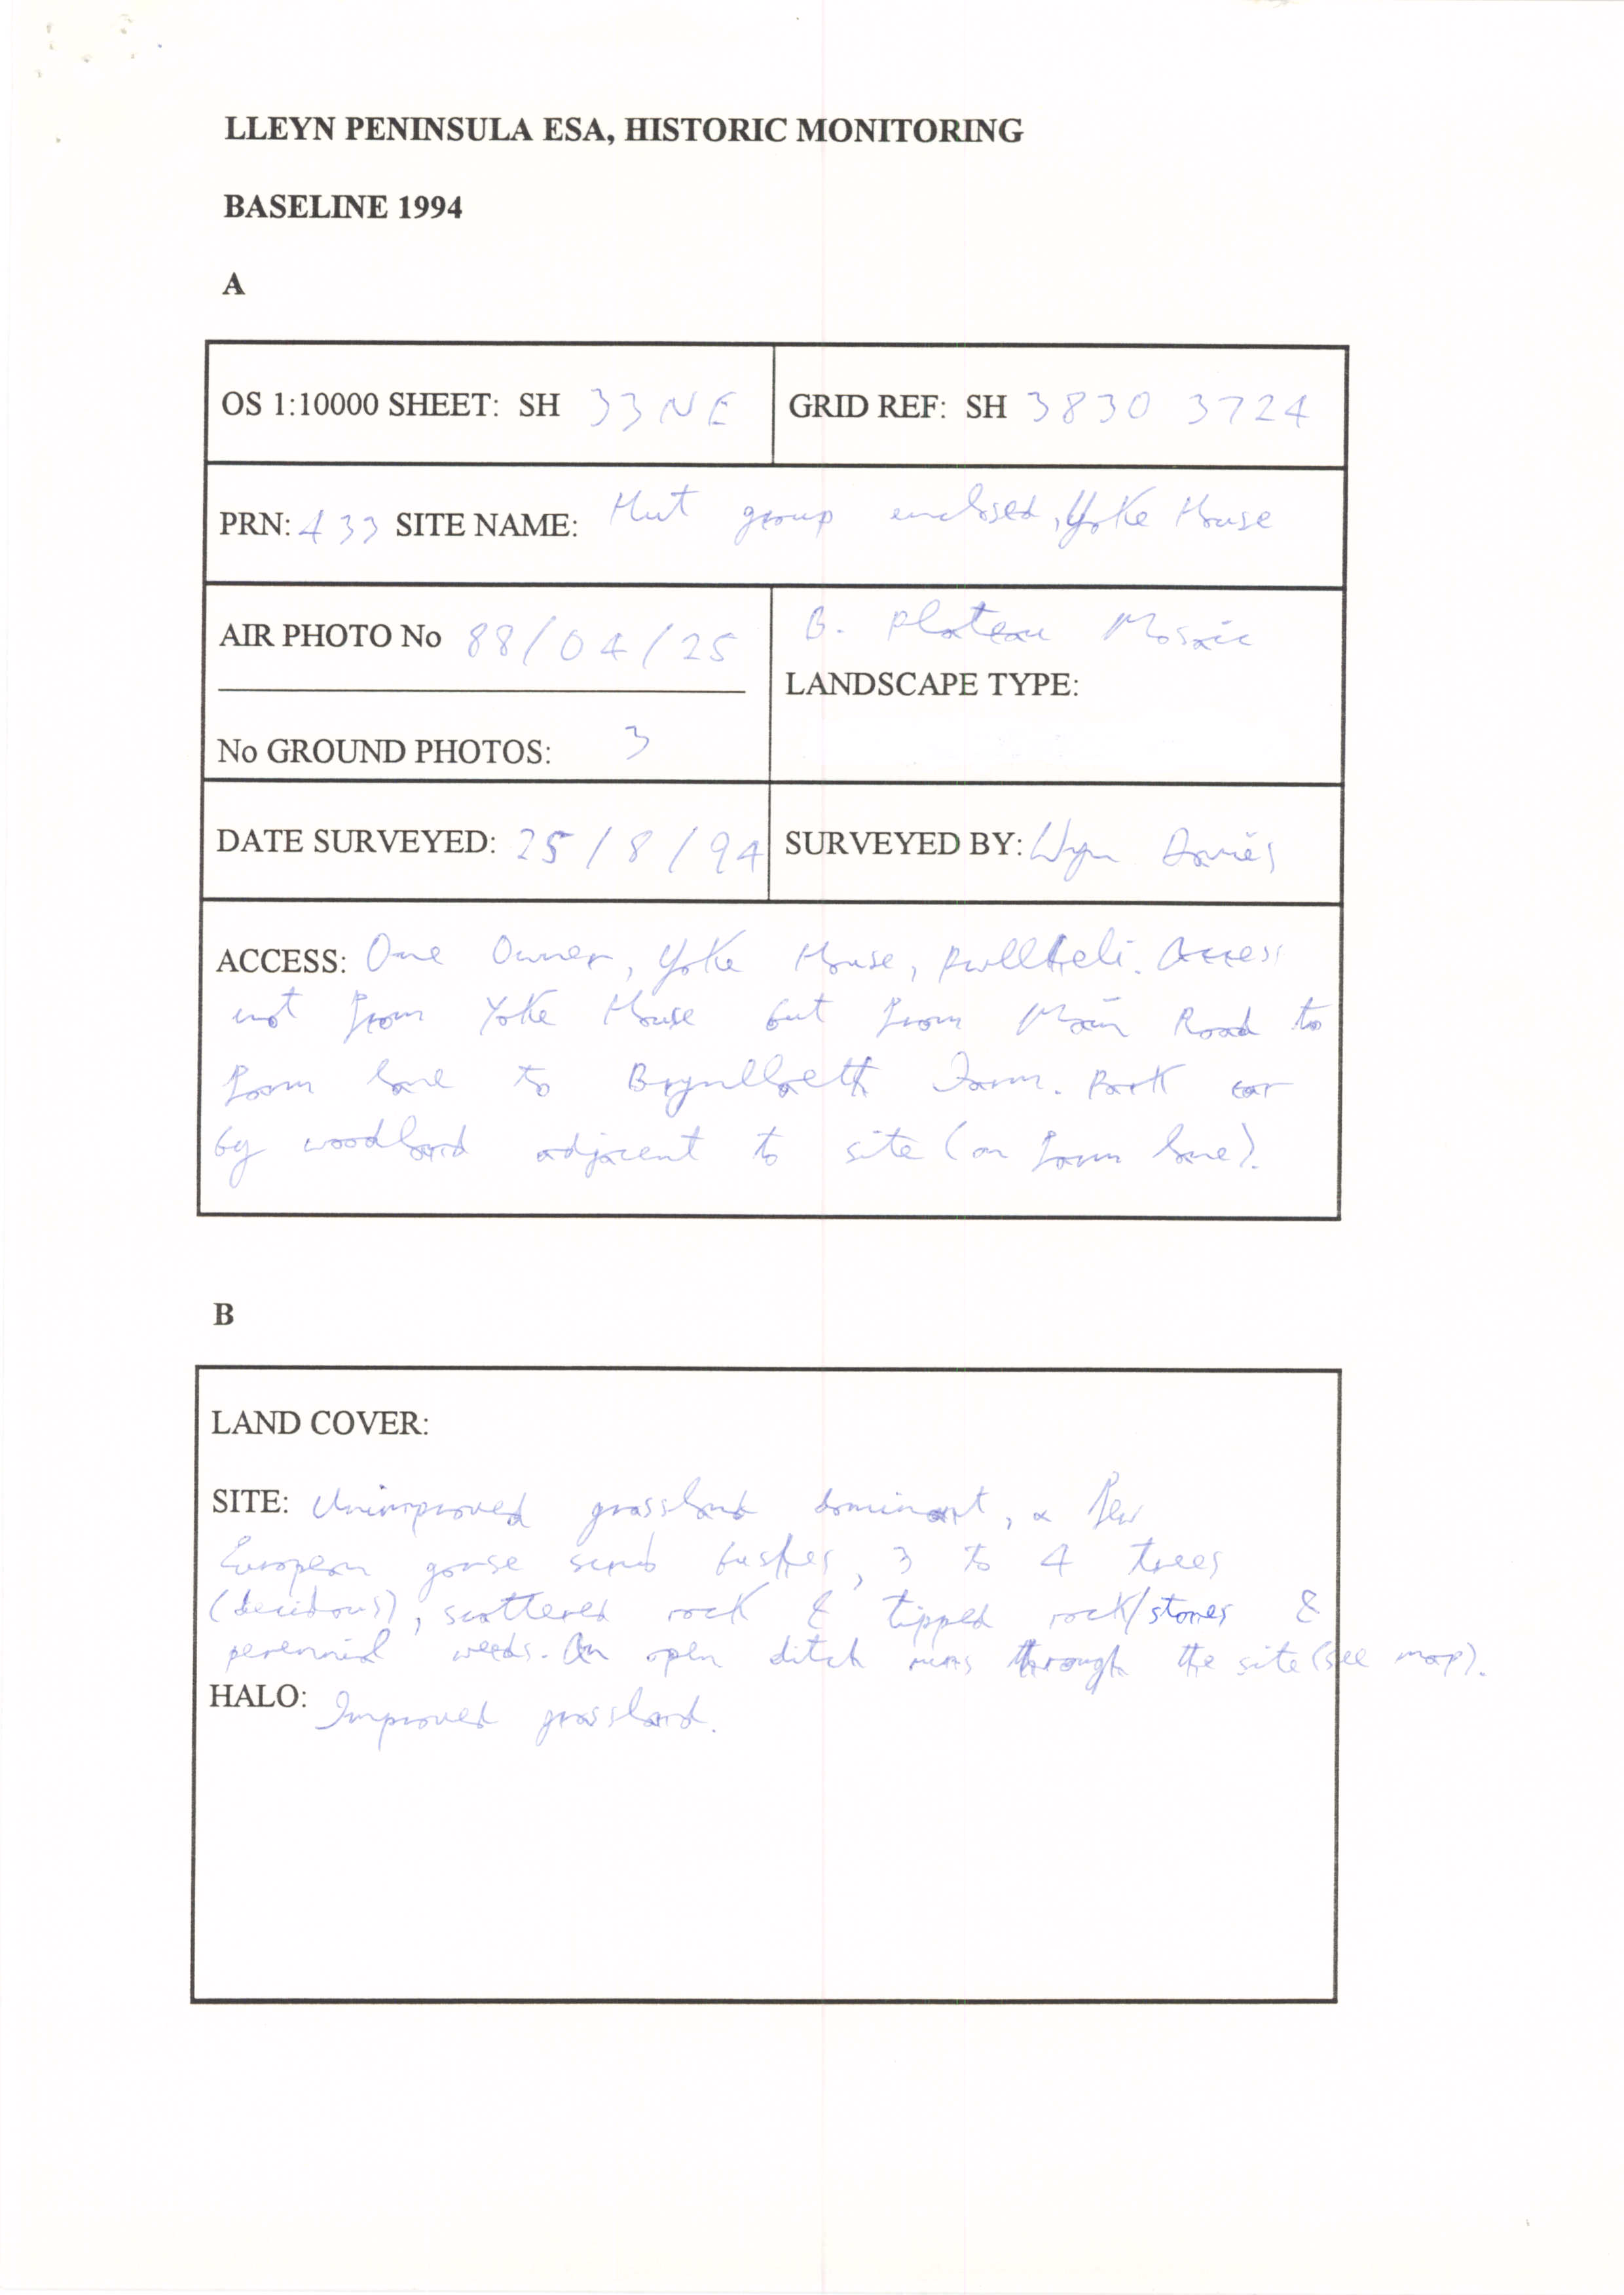 LLEYN PENINSULA ESA, HISTORIC MONITORING
BASELINE 1994
A
OS 1:10000 SHEET: SH 33NE
GRID REF: SH 3830 3724
PRN: 433 SITE NAME: Hut group enclosed, Yoke House
AIR PHOTO No 88/04/25
B. Plateau Mosaic
LANDSCAPE TYPE:
No GROUND PHOTOS: 3
DATE SURVEYED: 25/8/94
SURVEYED BY: Wyn Davies
ACCESS: One Owner, Yoke House, Pwllheli. Access
not from Yoke House but from Main Road to
farm lane to Farm. Park car
by woodland adjacent to site (on farm lane).
B
LAND COVER:
SITE: Unimproved grassland dominant, a few
European gorse scrub bushes, 3 to 4 trees
(decidous), scattered rock & tipped rock/stones &
perennial weeds. An open ditch runs through the site (see map).
HALO: Improved grassland.